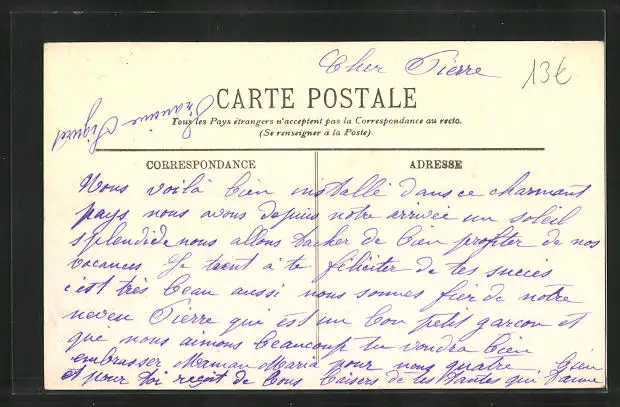 Cher Pierre
13€
CARTE POSTALE
Tous les Pays étrangers n'acceptent pas la Correspondance au recto.
(Se renseigner à la Poste).
CORRESPONDANCE
ADRESSE
Nous voilà bien installé dans ce charmant
pays nous avons depuis notre arrivée un soleil
splendide nous allons tacher de bien profiter de nos
vacances Je tient à te féliciter de tes succès
c'est très beau aussi nous sommes fier de notre
neveu Pierre qui est un bon petit garçon et
que nous aimons beaucoup tu voudra bien
embrasser Maman Maria pour nous quatre bien
et pour toi reçoit de bons baisers de tes tantes qui t'aime